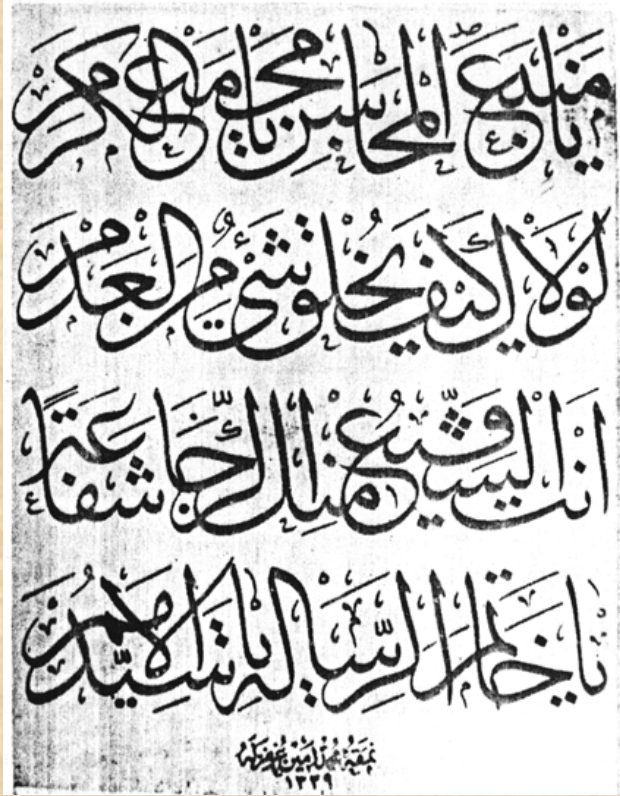 يا منبع المحاسن يا مجمع الكرم
لولاك كيف يخلق شيء من العدم
انت الشفيع منك الرجا شفاعة
يا خاتم الرسالة يا سيد الامم
نمقه محمد امين غفر له
١٣٣٩